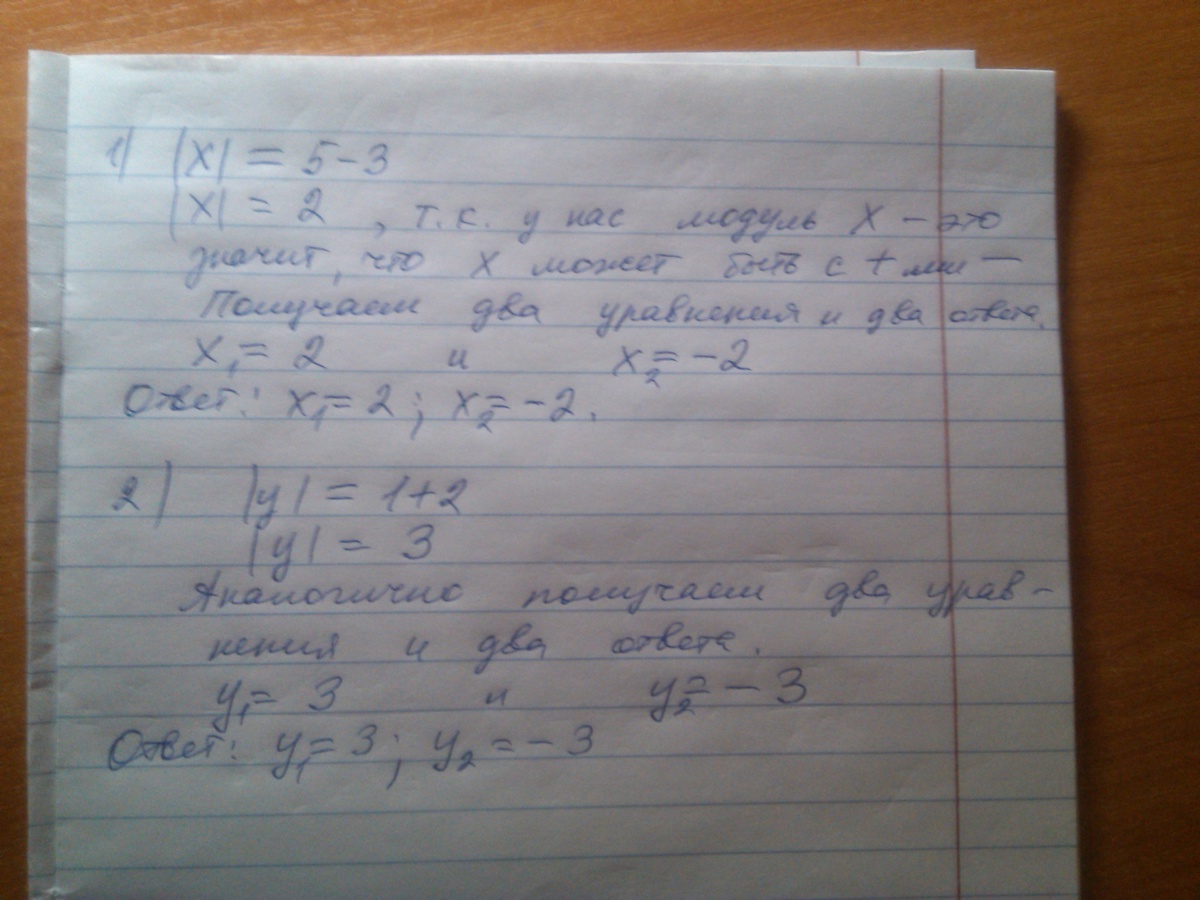 1) |x| = 5-3
|x| = 2 , т.к. у нас модуль x - это
значит, что x может быть с + или -
Получаем два уравнения и два ответа.
x₁= 2 и x₂= -2
Ответ: x₁= 2 ; x₂= -2.
2) |y| = 1+2
|y| = 3
Аналогично получаем два урав-
нения и два ответа.
y₁= 3 и y₂= - 3
Ответ: y₁= 3 ; y₂ = - 3